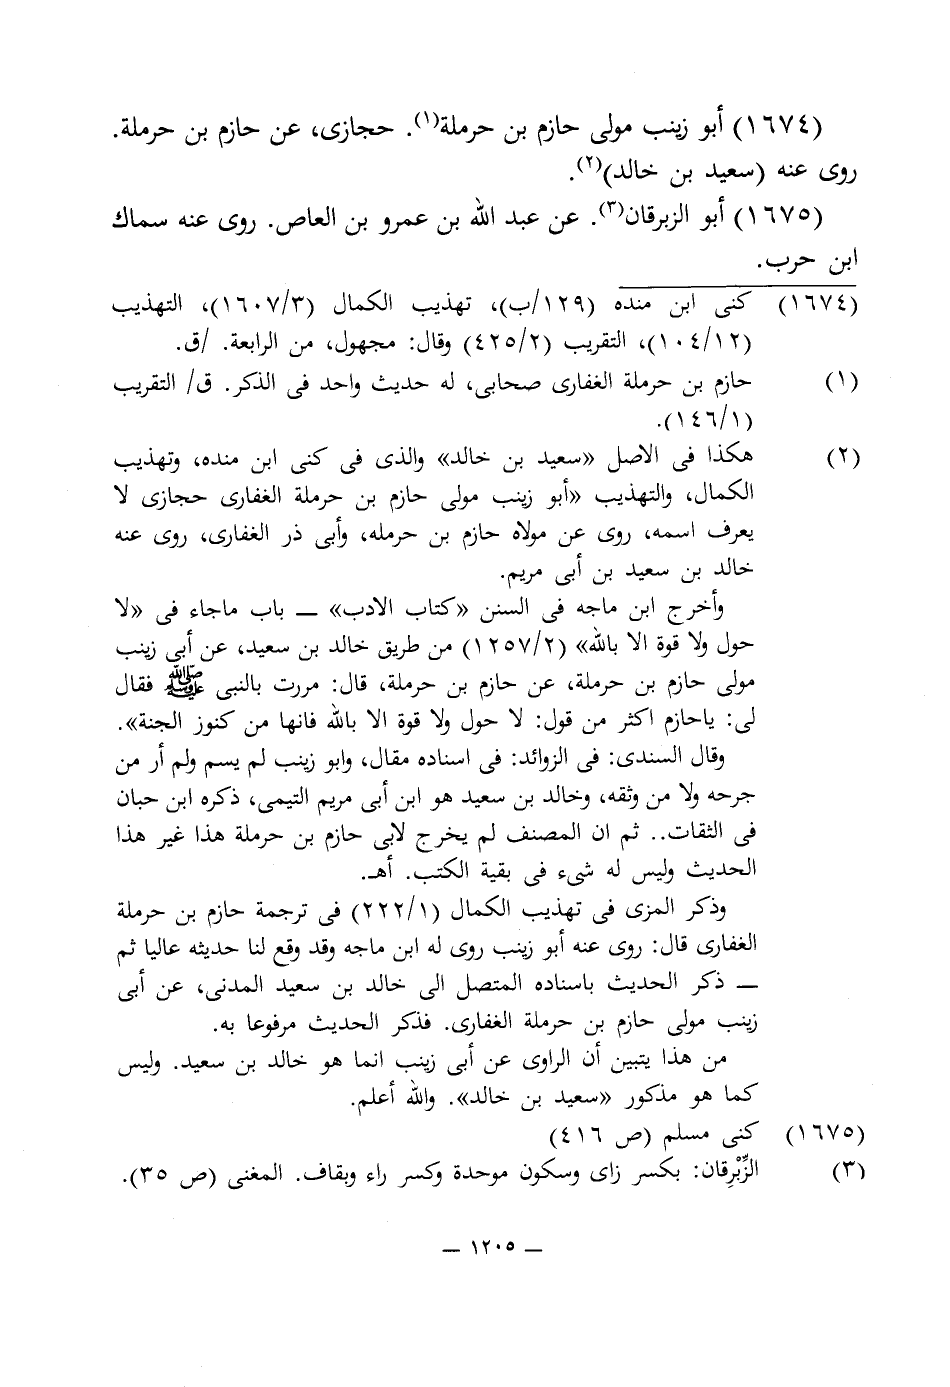 (١٦٧٤) أبو زينب مولى حازم بن حرملة(١). حجازى، عن حازم بن حرملة.
روى عنه (سعيد بن خالد)(٢).
(١٦٧٥) أبو الزبرقان(٣). عن عبد الله بن عمرو بن العاص. روى عنه سماك
ابن حرب.
(١٦٧٤) كنى ابن منده (١٢٩/ب)، تهذيب الكمال (١٦٠٧/٣)، التهذيب
(١٠٤/١٢)، التقريب (٤٢٥/٢) وقال: مجهول، من الرابعة. /ق.
(١) حازم بن حرملة الغفارى صحابى، له حديث واحد فى الذكر. ق/ التقريب
(١٤٦/١).
(٢) هكذا فى الاصل «سعيد بن خالد» والذى فى كنى ابن منده، وتهذيب
الكمال، والتهذيب «أبو زينب مولى حازم بن حرملة الغفارى حجازى لا
يعرف اسمه، روى عن مولاه حازم بن حرمله، وأبى ذر الغفارى، روى عنه
خالد بن سعيد بن أبى مريم.
وأخرج ابن ماجه فى السنن «كتاب الادب» ـــ باب ماجاء فى «لا
حول ولا قوة الا بالله» (١٢٥٧/٢) من طريق خالد بن سعيد، عن أبى زينب
مولى حازم بن حرملة، عن حازم بن حرملة، قال: مررت بالنبى ﷺ فقال
لى: ياحازم اكثر من قول: لا حول ولا قوة الا بالله فانها من كنوز الجنة».
وقال السندى: فى الزوائد: فى اسناده مقال، وابو زينب لم يسم ولم أر من
جرحه ولا من وثقه، وخالد بن سعيد هو ابن أبى مريم التيمى، ذكره ابن حبان
فى الثقات.. ثم ان المصنف لم يخرج لابى حازم بن حرملة هذا غير هذا
الحديث وليس له شىء فى بقية الكتب. أهـ.
وذكر المزى فى تهذيب الكمال (٢٢٢/١) فى ترجمة حازم بن حرملة
الغفارى قال: روى عنه أبو زينب روى له ابن ماجه وقد وقع لنا حديثه عاليا ثم
ـــ ذكر الحديث باسناده المتصل الى خالد بن سعيد المدنى، عن أبى
زينب مولى حازم بن حرملة الغفارى. فذكر الحديث مرفوعا به.
من هذا يتبين أن الراوى عن أبى زينب انما هو خالد بن سعيد. وليس
كما هو مذكور «سعيد بن خالد». والله أعلم.
(١٦٧٥) كنى مسلم (ص ٤١٦)
(٣) الزِّبْرِقان: بكسر زاى وسكون موحدة وكسر راء وبقاف. المغنى (ص ٣٥).
ـــ ١٢٠٥ ـــ